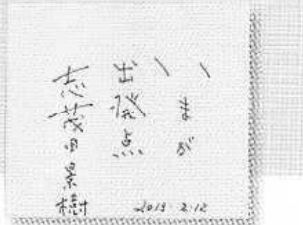 いまが
出発点
志茂田景樹
2013 2.12